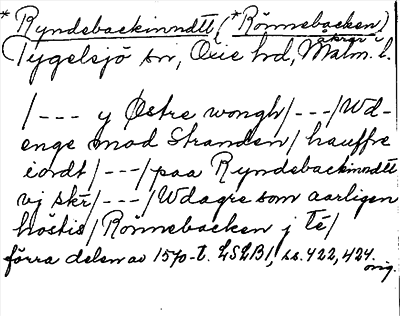 *Ryndebackinndtt (*Rönnebacken)
åkrar i
Tygelsjö sn, Oxie hd, Malm. l.
/--- y Østre wongh/---/Wd-
enge mod Stranden/ hauffre
iordt/---/paa Ryndebackinndtt
vj skr/---/Wdagre som aarligen
höstis/Rönnebacken j té/
förra delen av 1570-t. LSLB1, ss. 422, 424.
orig.